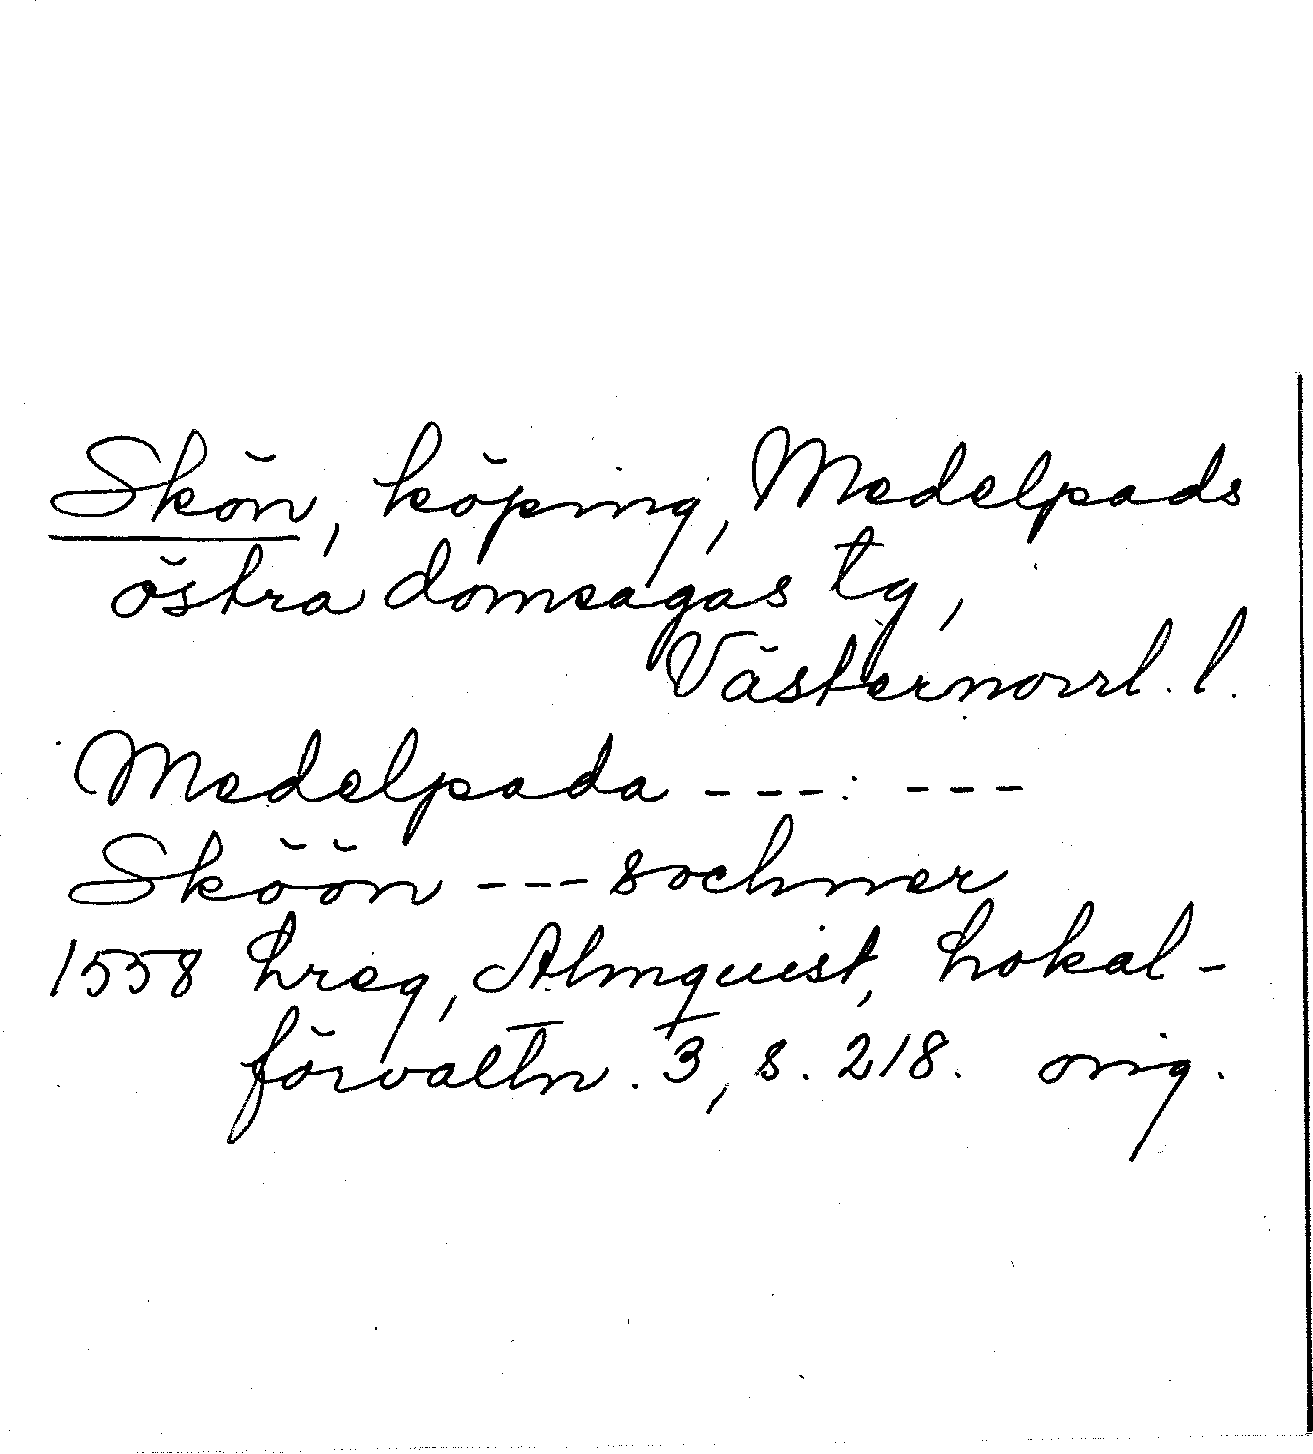 Skön, köping, Medelpads
östra domsagas tg,
Västernorrl. l.
Medelpada ---: ---
Sköön --- sochner
1558 hreg, Almquist, Lokal-
förvaltn. 3, s. 218. orig.